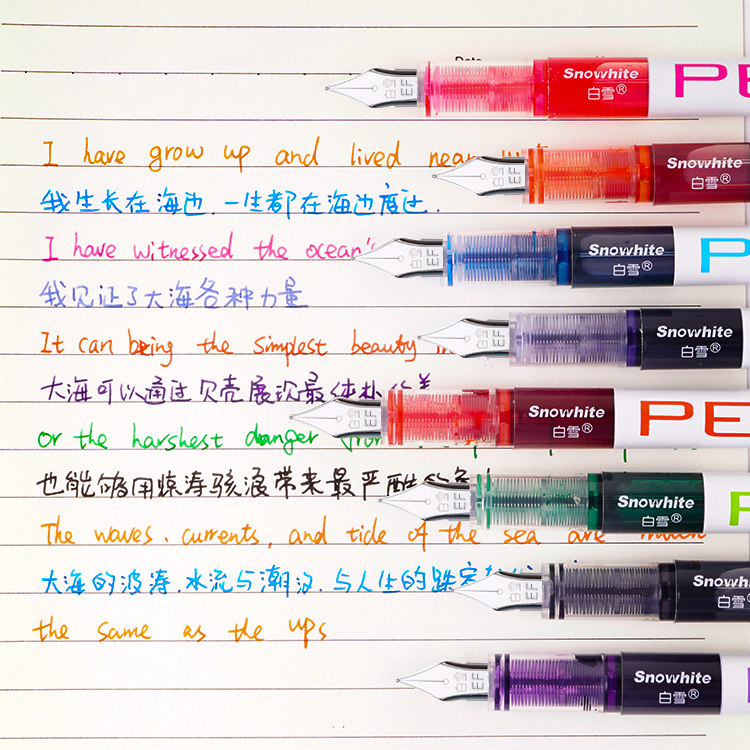 Date
Snowhite PE
白雪®
I have grow up and lived near
Snowhite
白雪®
我生长在海边.一生都在海边度过.
I have witnessed the ocean's
Snowhite P
白雪®
我见证了大海各种力量
Snowhite
白雪®
It can bring the simplest beauty
大海可以通过贝壳展现最朴
Snowhite PE
白雪®
or the harshest danger from
也能够用惊涛骇浪带来最严酷的危
Snowhite
白雪®
The waves. currents, and tide of the sea are much
大海的波涛.水流与潮汐.与人生的跌宕
Snowhite
白雪®
the same as the ups
Snowhite
白雪®
EF
EF
EF
EF
EF
EF
EF
EF